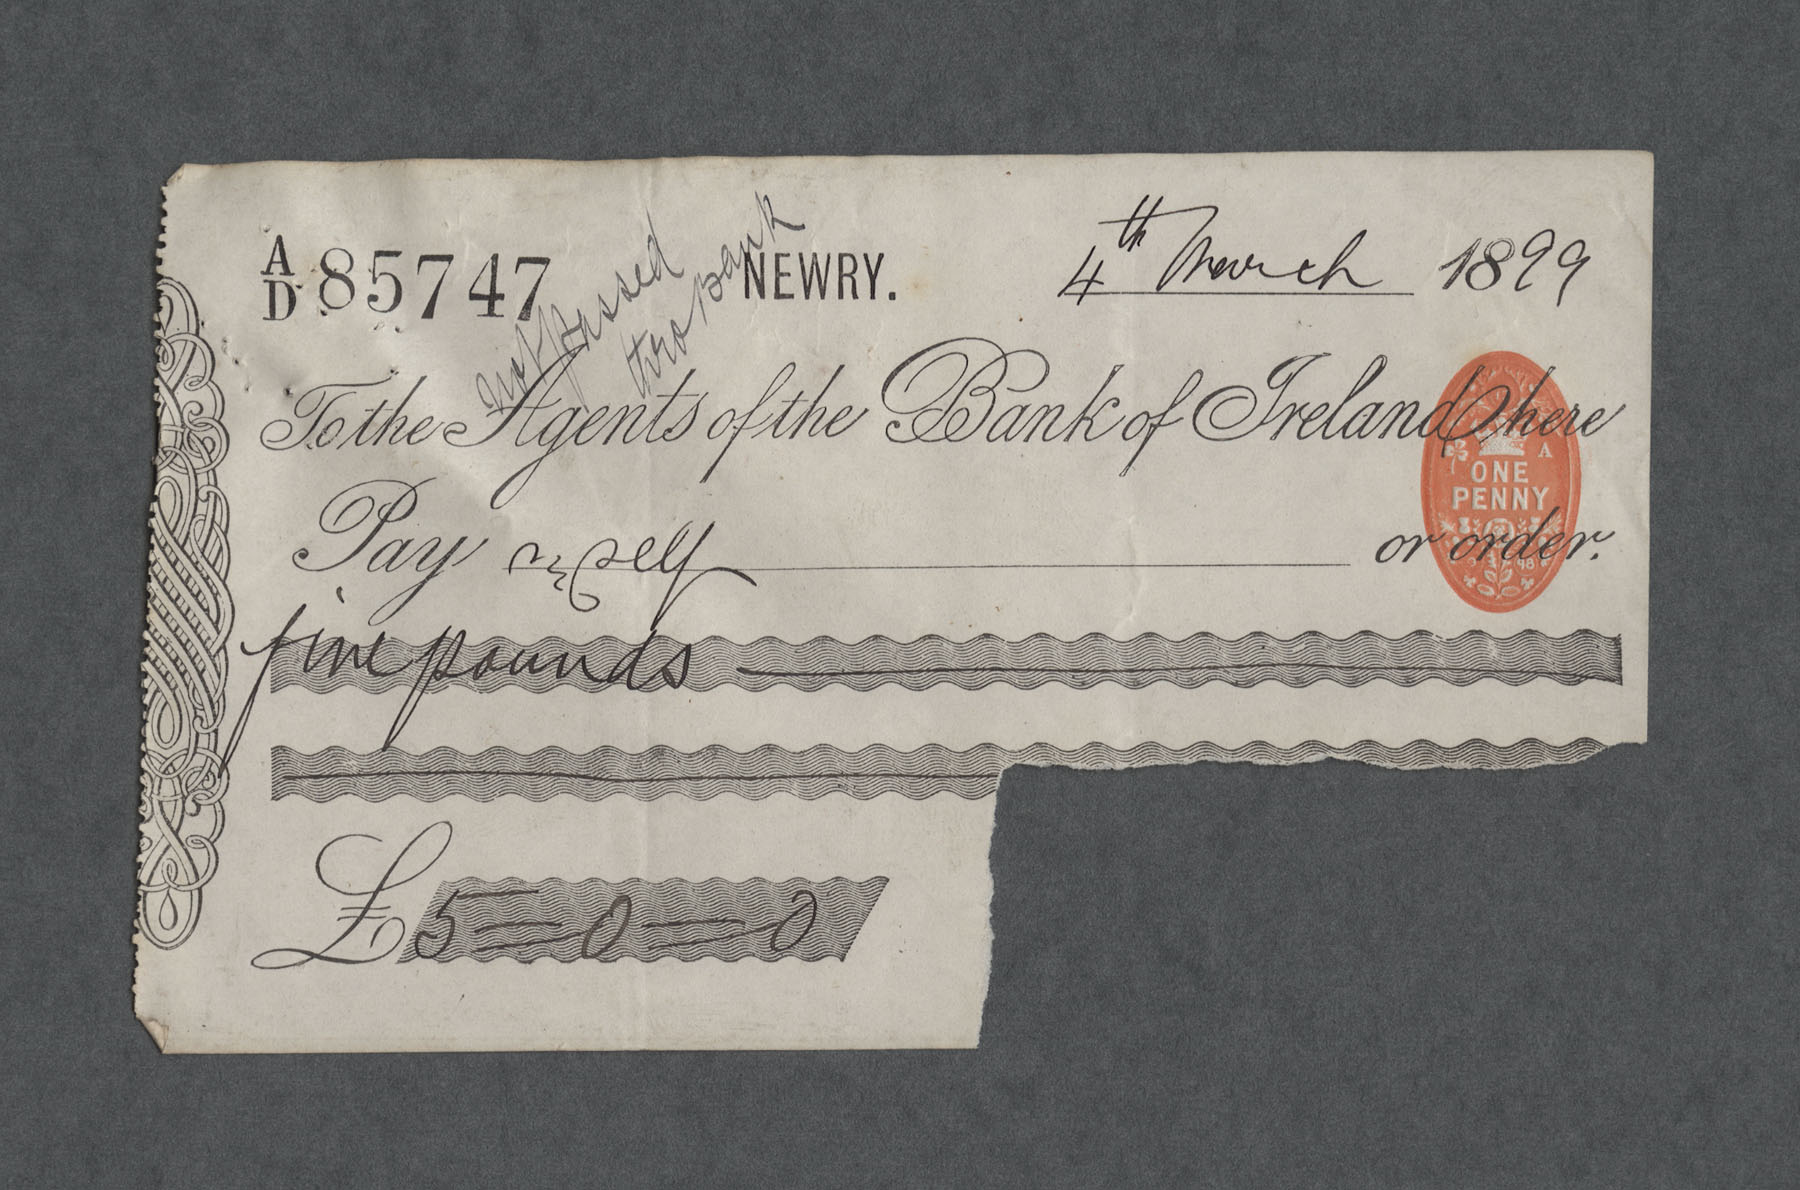 A/D 85747
not passed
thro Bank
NEWRY.
4th March 1899
To the Agents of the Bank of Ireland, here
A
ONE
PENNY
Pay myself or order.
five pounds
£5=0=0